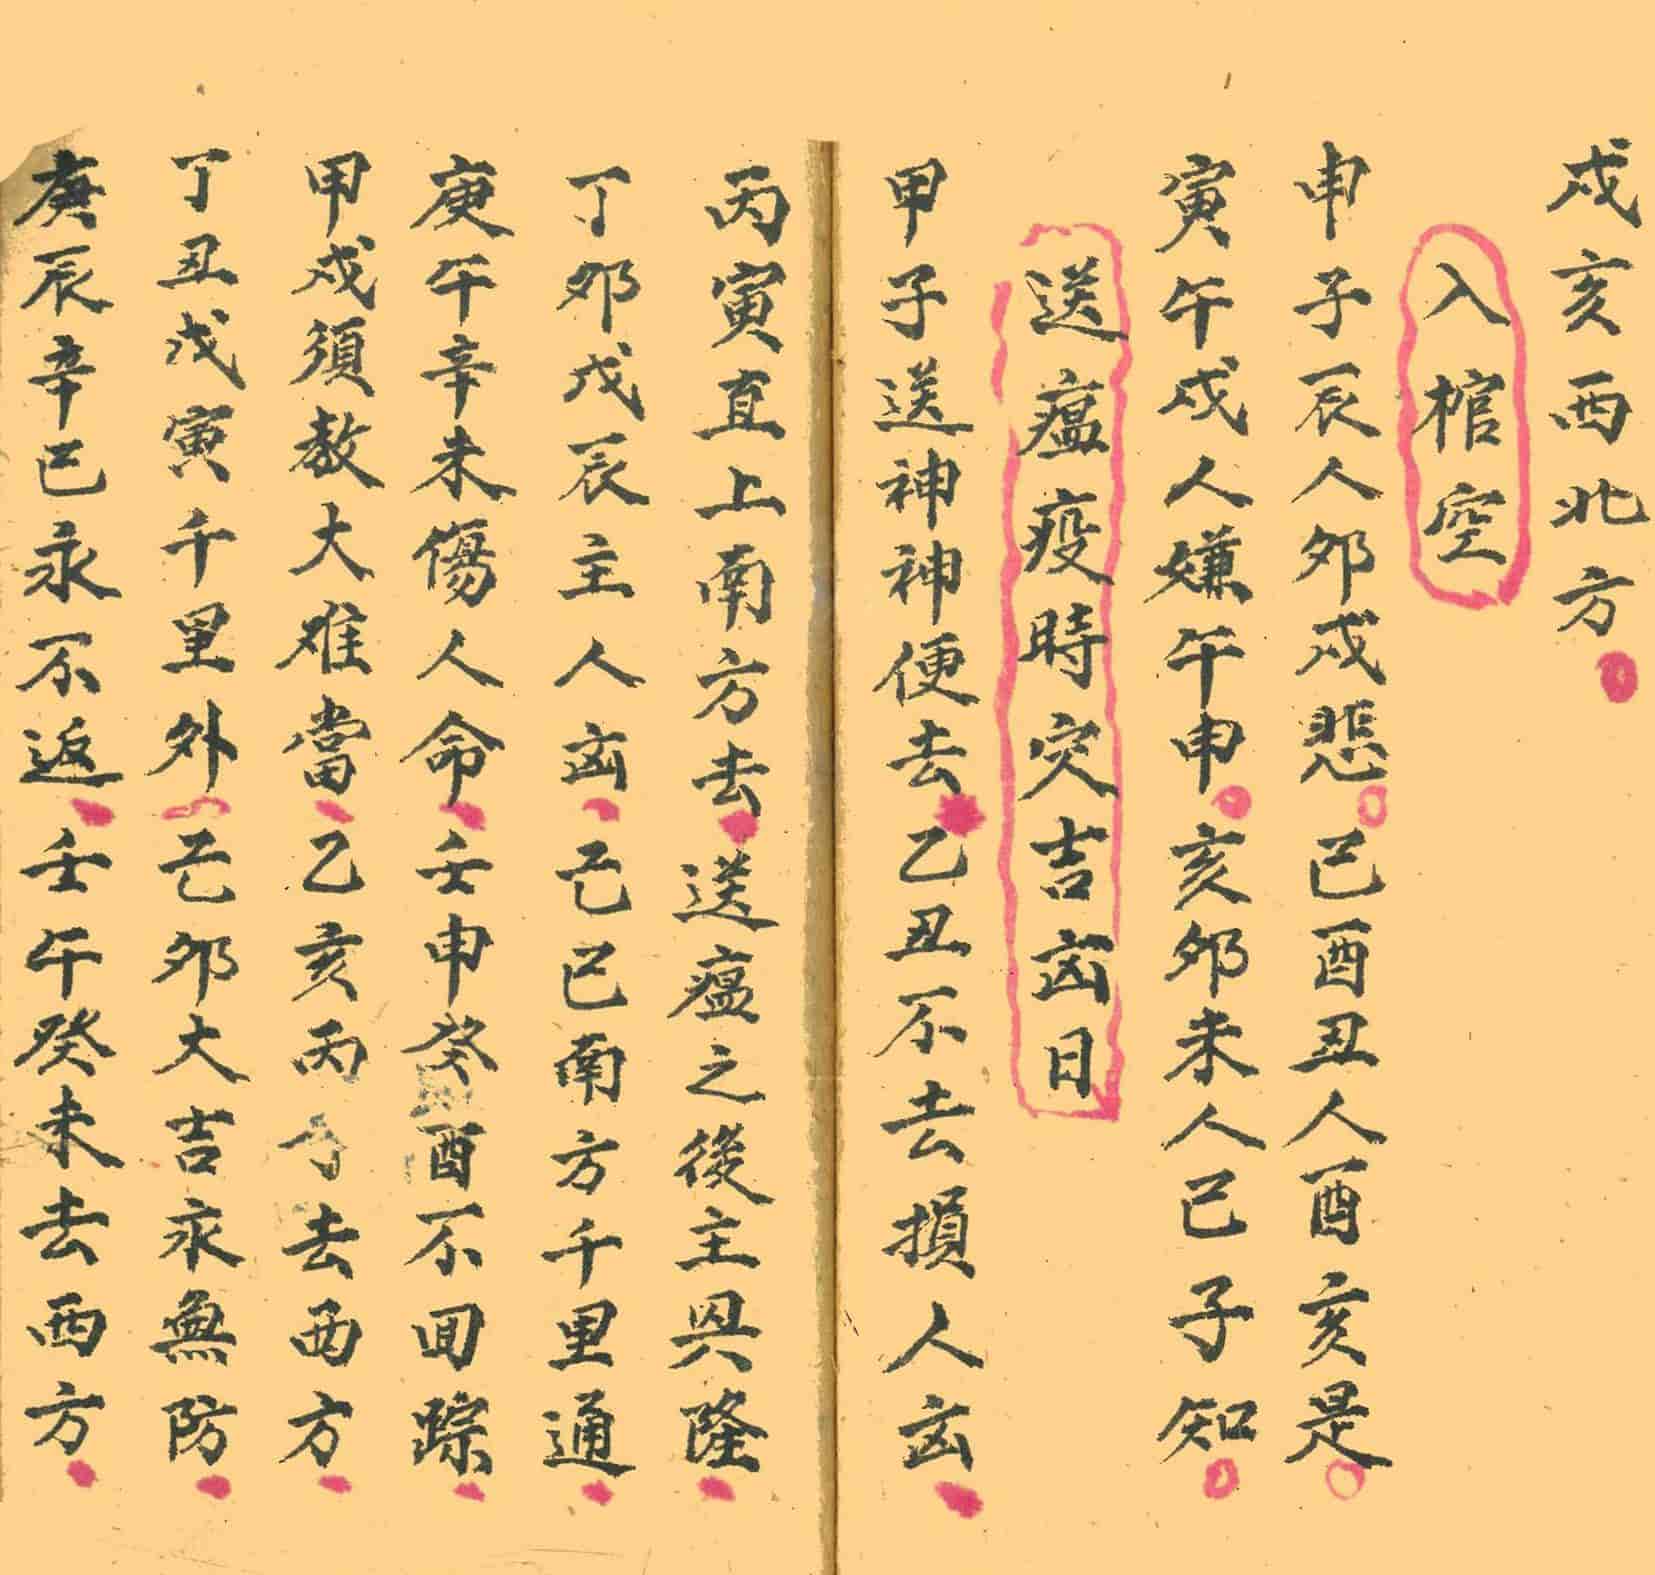 戌亥西北方。
入棺空
申子辰人卯戌悲。巳酉丑人酉亥是。
寅午戌人嫌午申。亥卯未人巳子知。
送瘟疫時灾吉凶日
甲子送神神便去。乙丑不去損人凶。
丙寅直上南方去。送瘟之後主興隆。
丁卯戊辰主人凶。己巳南方千里通。
庚午辛未傷人命。壬申癸酉不回踪。
甲戌須教大难當。乙亥丙子去西方。
丁丑戊寅千里外。己卯大吉永無防。
庚辰辛巳永不返。壬午癸未去西方。